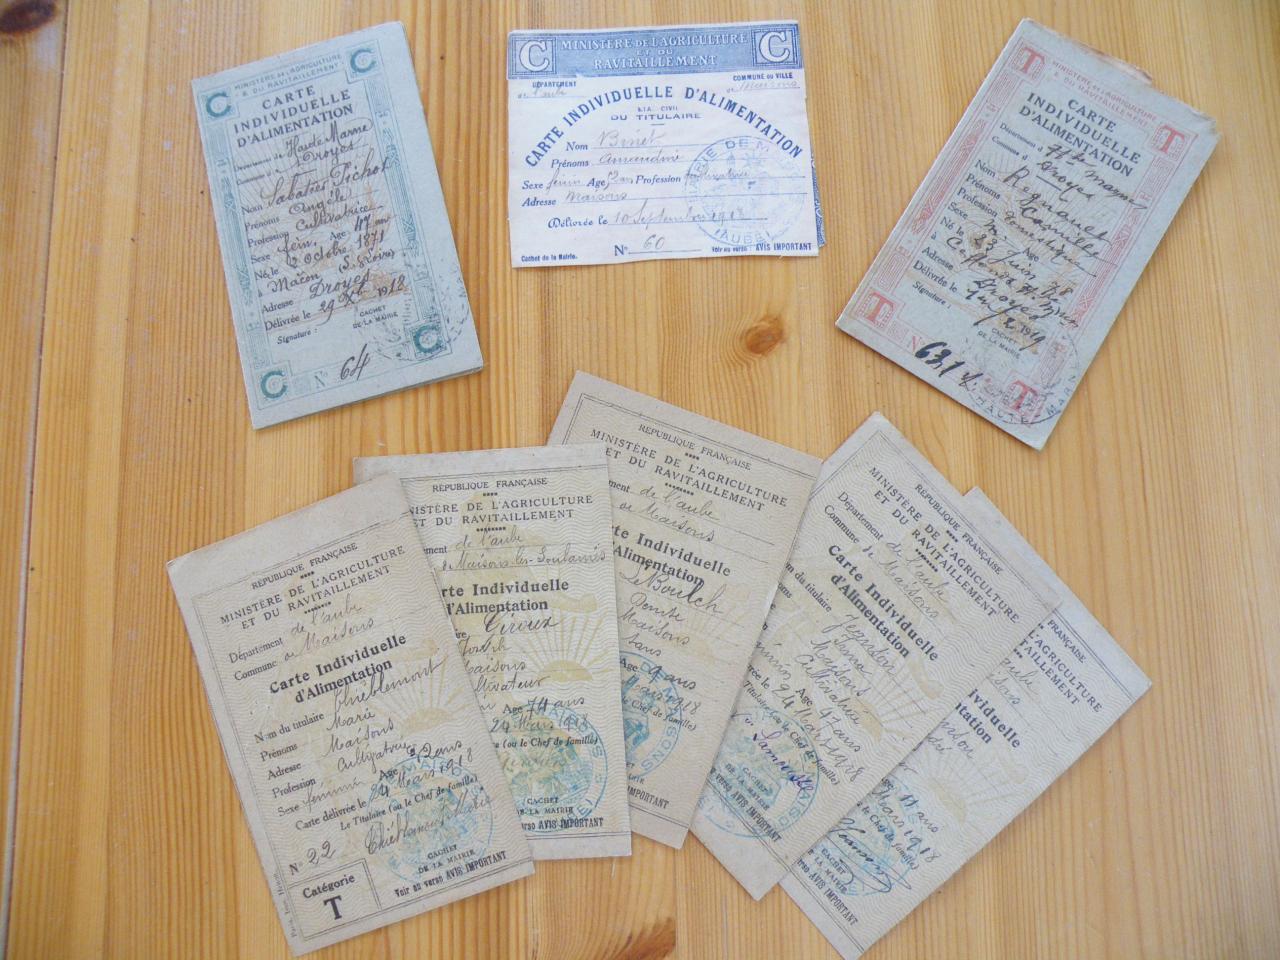 C
C
MINISTÈRE DE L'AGRICULTURE
& DU RAVITAILLEMENT
CARTE
INDIVIDUELLE
D'ALIMENTATION
Département de Haute Marne
Commune d Droyes
Nom Sabatier Pichot
Prénoms Angèle
Profession Cultivatrice
Sexe fém. Age 47 ans
Né le 2 Octobre 1871
à Macon
Adresse Droyes
Délivrée le 29 Xbre 1918
Signature :
CACHET
DE LA MAIRIE
C
C
N° 64
C
C
MINISTÈRE DE L'AGRICULTURE
ET DU
RAVITAILLEMENT
DÉPARTEMENT
de l'aube
COMMUNE OU VILLE
de Maisons
CARTE INDIVIDUELLE D'ALIMENTATION
ÉTAT CIVIL
DU TITULAIRE
Nom Binet
Prénoms Amandine
Sexe fémin Age ans Profession
Adresse Maisons
Délivrée le 10 Septembre 1918
N° 60
Cachet de la Mairie.
Voir au verso AVIS IMPORTANT
MAIRIE DE
(AUBE)
T
T
MINISTÈRE DE L'AGRICULTURE
& DU RAVITAILLEMENT
CARTE
INDIVIDUELLE
D'ALIMENTATION
Département d Hte Marne
Commune d Droyes
Nom Regnault
Prénoms Camille
Profession domestique
Sexe m
Né le 23 Juin 78
à Ceffonds
Adresse Droyes
Délivrée le 1919
Signature :
CACHET
DE LA MAIRIE
T
T
N° 631
RÉPUBLIQUE FRANÇAISE
MINISTÈRE DE L'AGRICULTURE
ET DU RAVITAILLEMENT
Département de l'aube
Commune de Maisons
Carte Individuelle
d'Alimentation
Nom du titulaire Thiéblemont
Prénoms Marie
Adresse Maisons
Profession Cultivatrice
Sexe féminin Age 32 ans
Carte délivrée le 24 Mars 1918
Le Titulaire (ou le Chef de famille)
Thiéblemont Marie
N° 22
CACHET
DE LA MAIRIE
Catégorie
T
Voir au verso AVIS IMPORTANT
RÉPUBLIQUE FRANÇAISE
NISTÈRE DE L'AGRICULTURE
ET DU RAVITAILLEMENT
tement de l'aube
de Maisons-les-Soulaines
rte Individuelle
d'Alimentation
laire Giroux
Joseph
Maisons
ultivateur
Age 74 ans
24 Mars 1918
re (ou le Chef de famille)
CACHET
DE LA MAIRIE
verso AVIS IMPORTANT
RÉPUBLIQUE FRANÇAISE
MINISTÈRE DE L'AGRICULTURE
ET DU RAVITAILLEMENT
ement de l'aube
de Maisons
te Individuelle
d'Alimentation
Le Boulch
Denise
Maisons
sans
Age 9 ans
Mars 1918
le Chef de famille)
CACHET
MAIRIE
AVIS IMPORTANT
RÉPUBLIQUE FRANÇAISE
MINISTÈRE DE L'AGRICULTURE
ET DU RAVITAILLEMENT
Département de l'aube
Commune de Maisons
Carte Individuelle
d'Alimentation
m du titulaire
Anna
Maisons
Cultivatrice
féminin Age 47 ans
vrée le 24 Mars 1918
Titulaire (ou le Chef de famille)
CACHET
DE LA MAIRIE
verso AVIS IMPORTANT
FRANÇAISE
L'AGRICULTURE
TAILLEMENT
aube
Maisons
Individuelle
mentation
Age 11 ans
Mars 1918
Chef de famille)
CACHET
DE LA MAIRIE
verso AVIS IMPORTANT